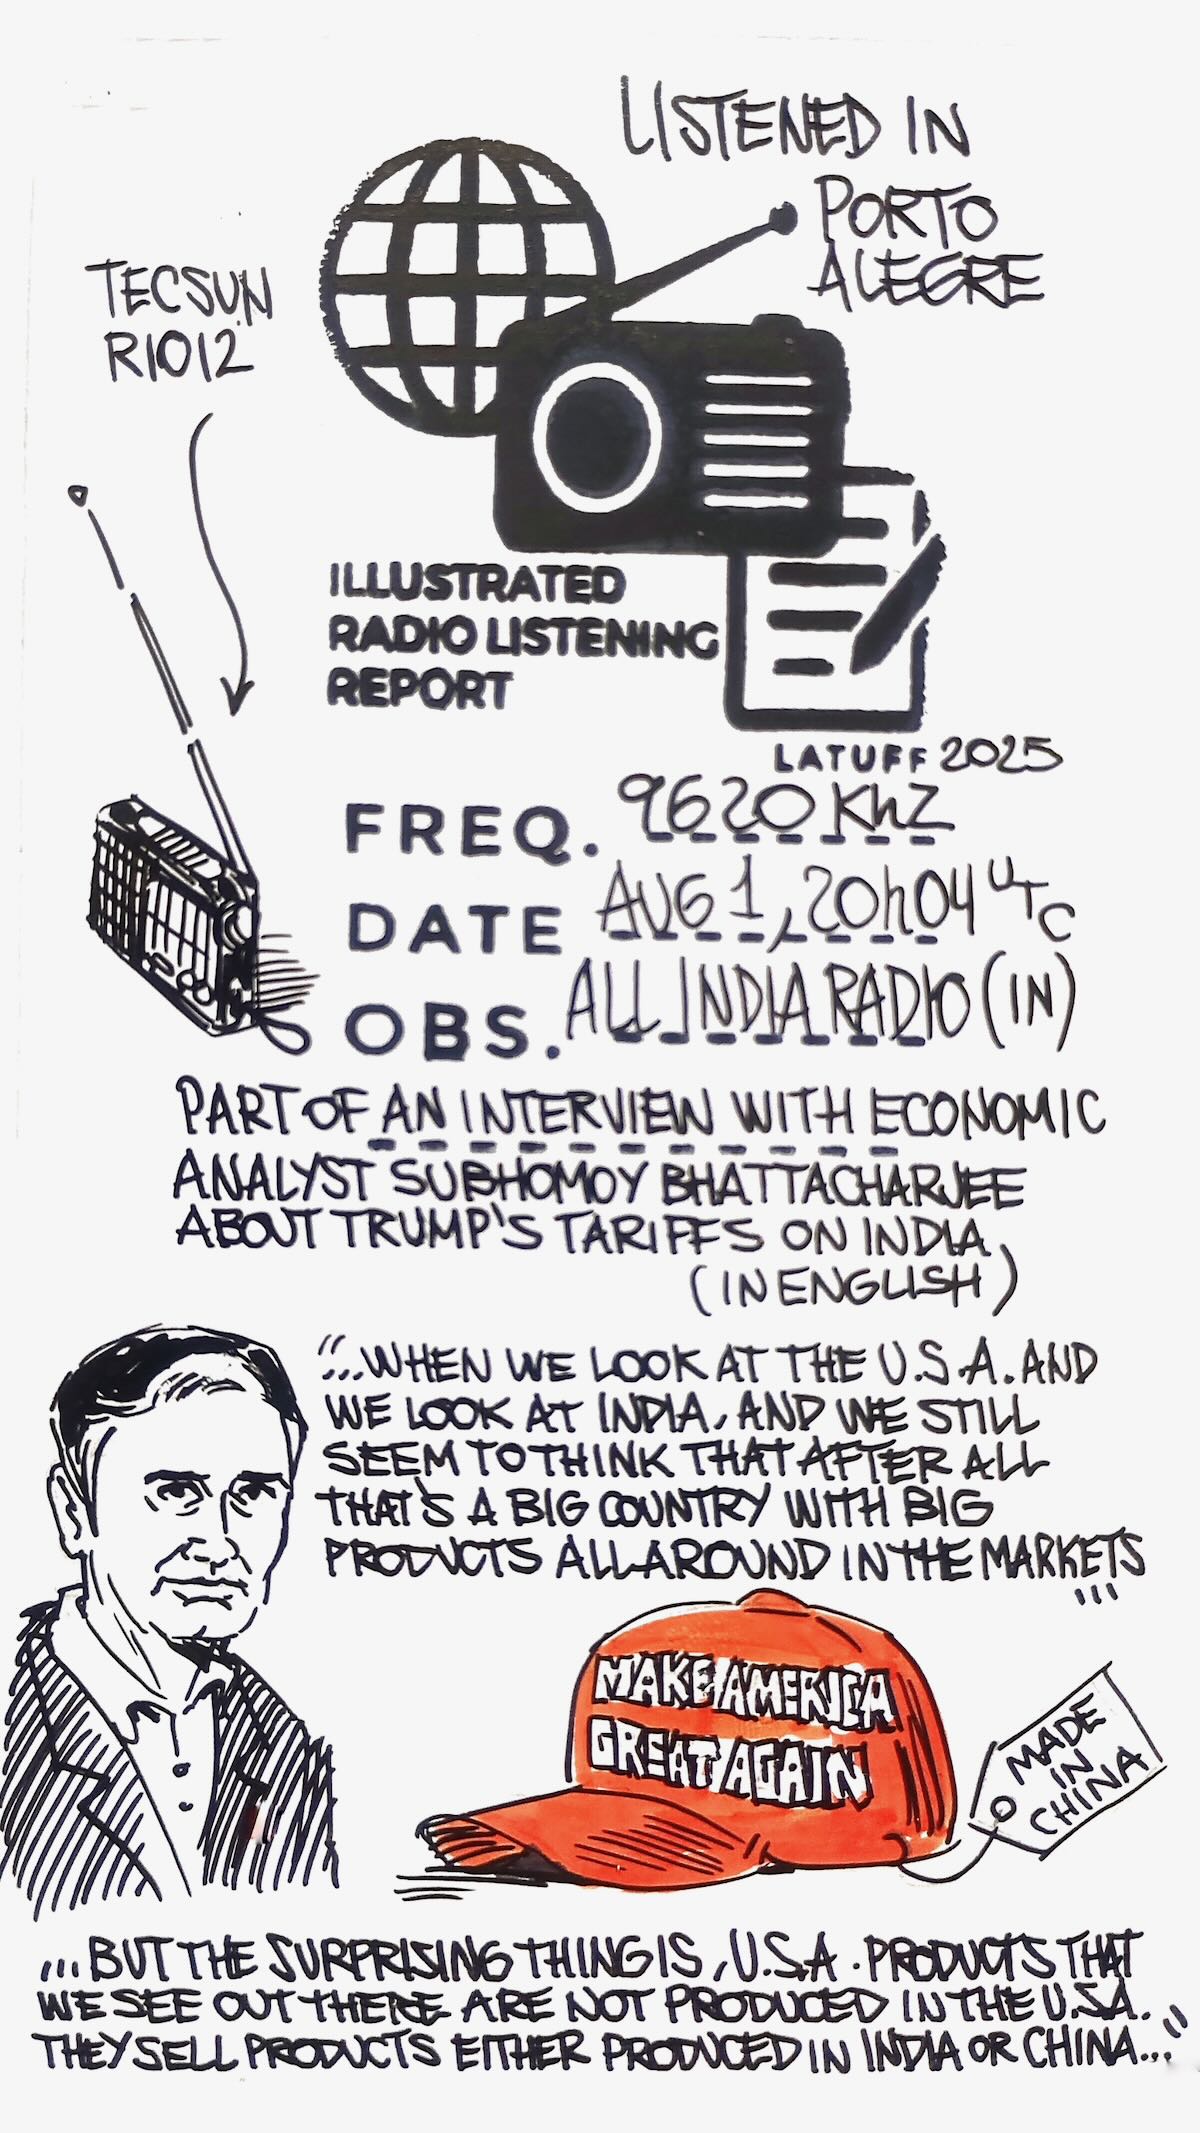 LISTENED IN
PORTO
ALEGRE
TECSUN
R1012
ILLUSTRATED
RADIO LISTENING
REPORT
LATUFF 2025
FREQ. 9620 KHZ
DATE AUG 1, 20h04 UTC
OBS. ALL INDIA RADIO (IN)
PART OF AN INTERVIEW WITH ECONOMIC
ANALYST SUBHOMOY BHATTACHARJEE
ABOUT TRUMP'S TARIFFS ON INDIA
(IN ENGLISH)
"...WHEN WE LOOK AT THE U.S.A. AND
WE LOOK AT INDIA, AND WE STILL
SEEM TO THINK THAT AFTER ALL
THAT'S A BIG COUNTRY WITH BIG
PRODUCTS ALL AROUND IN THE MARKETS
...
MAKE AMERICA
GREAT AGAIN
MADE
IN
CHINA
...BUT THE SURPRISING THING IS, U.S.A. PRODUCTS THAT
WE SEE OUT THERE ARE NOT PRODUCED IN THE U.S.A.
THEY SELL PRODUCTS EITHER PRODUCED IN INDIA OR CHINA..."